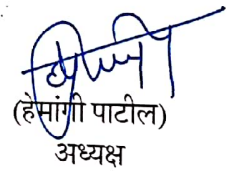 (हेमांगी पाटील)
अध्यक्ष